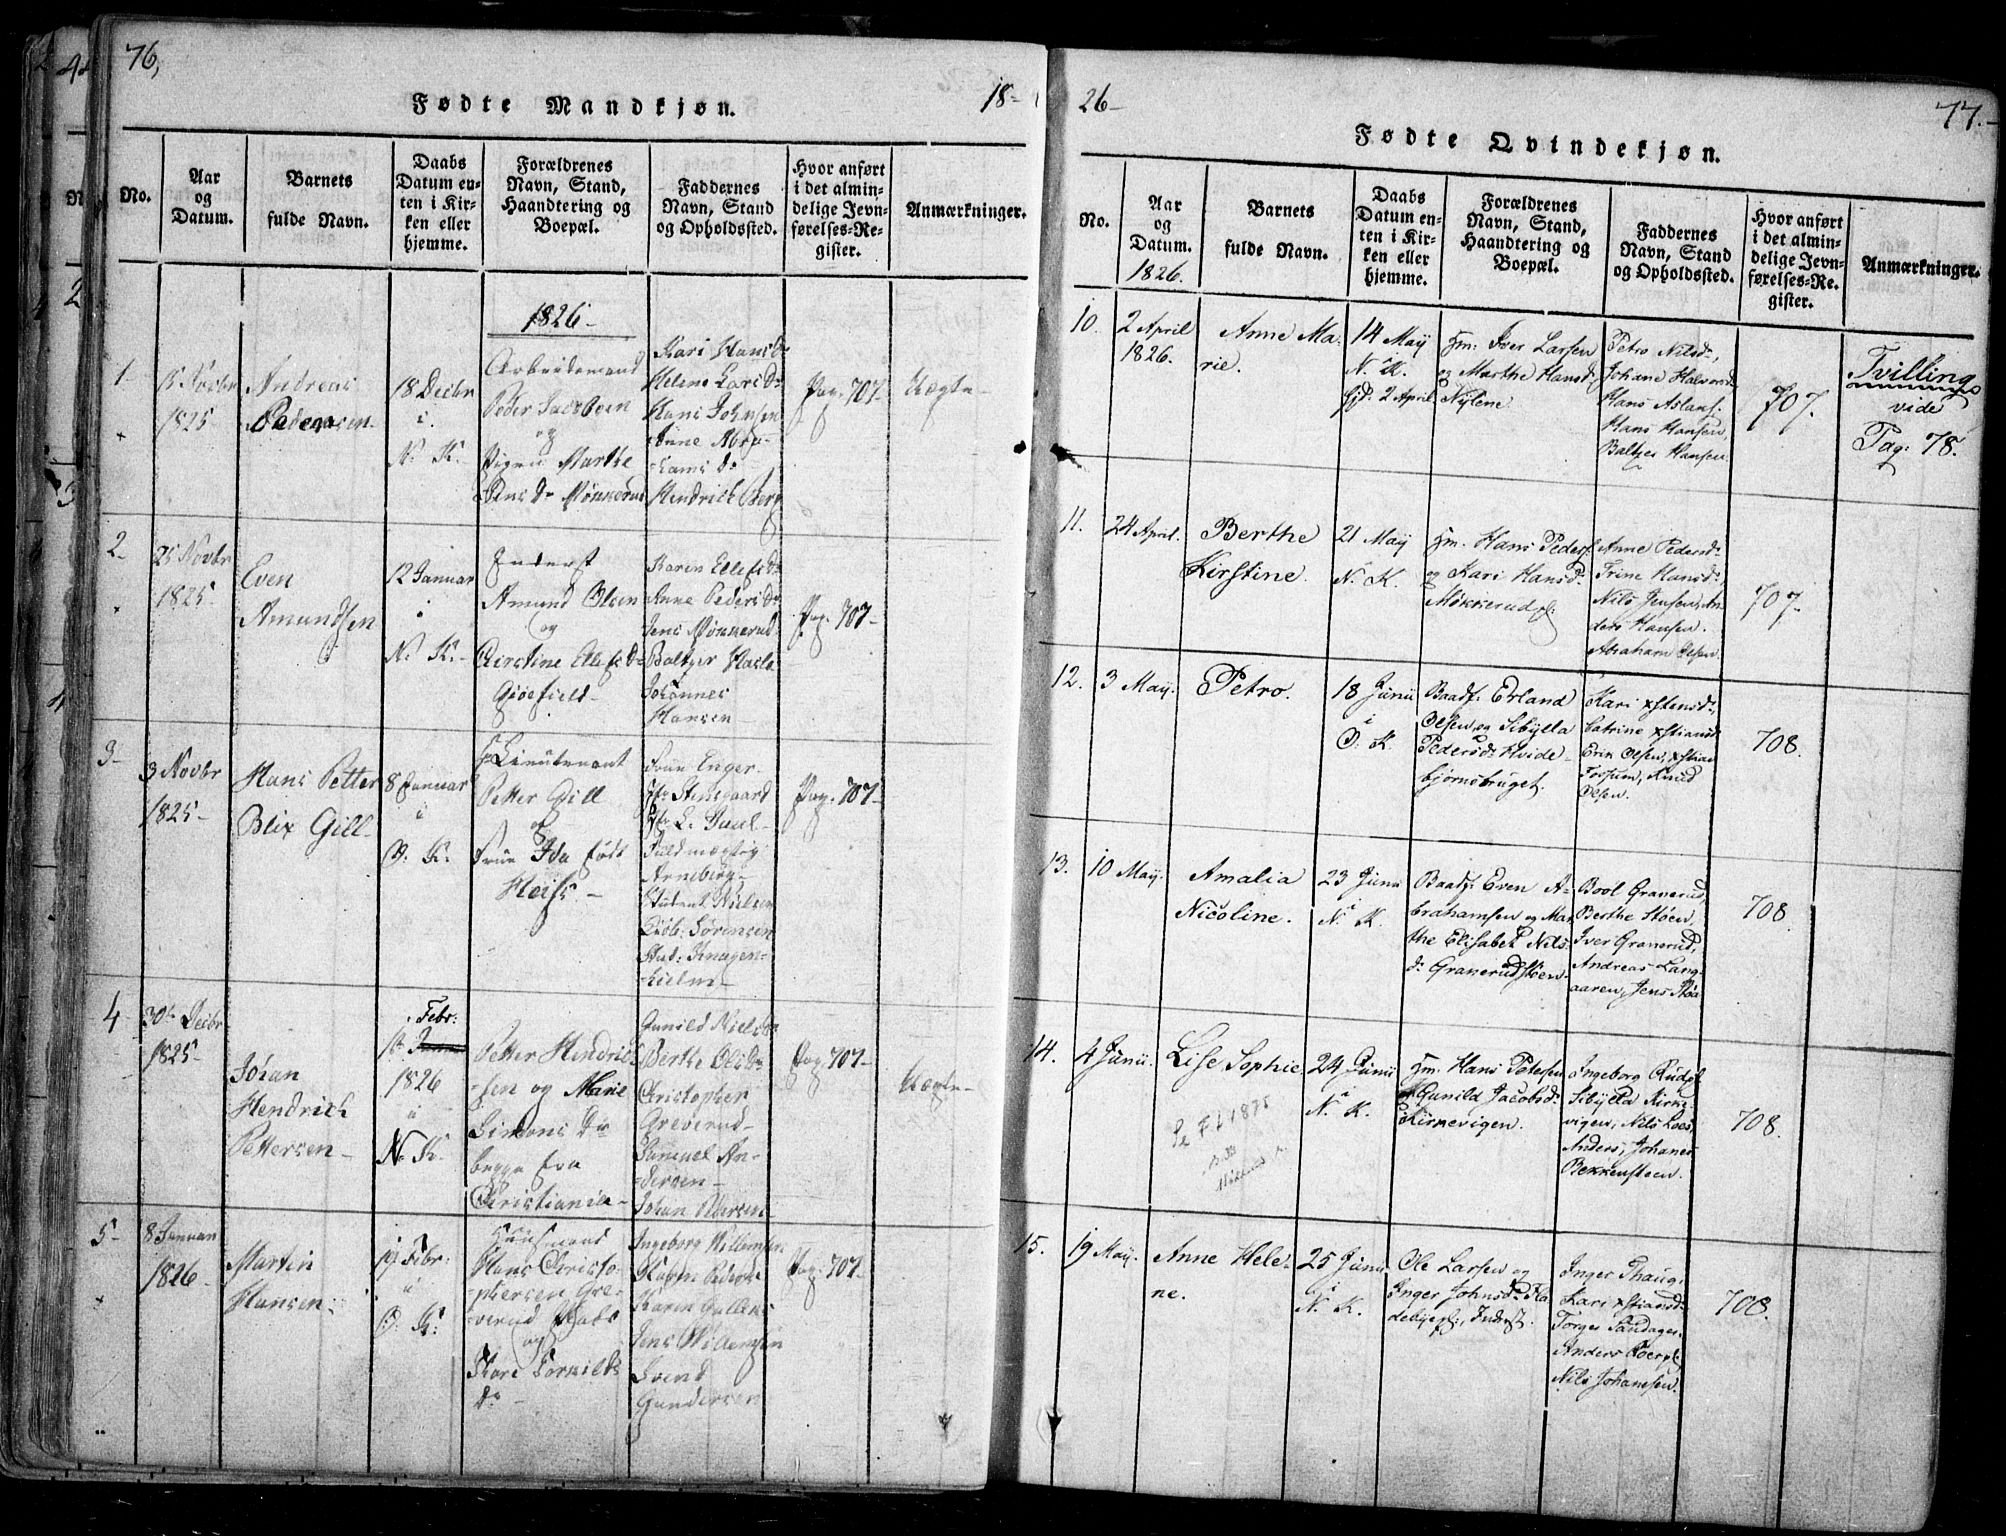 76,
Fødte Mandkjøn.
18-
No.
Aar
og
Datum.
Barnets
fulde Navn.
Daabs
Datum en-
ten i Kir-
ken eller
hjemme.
Forældrenes
Navn, Stand,
Haandtering og
Boepæl.
Faddernes
Navn, Stand
og Opholdssted.
Hvor anført
i det almin-
delige Jevn-
førelses-Re-
gister.
Anmærkninger.
1826-
1-
15 Novbr
1825-
Andreas
Pedersen
18 Decbr
i
N. K.
Arbeidsmand
Peder Jacobsen
og
Pigen Marthe
Kari Hansd.
Helene Larsd.
Hans Johnsen
Anne Abra-
hamsd.
Hendrich Berg
Pag. 707-
Uægte-
2-
25 Novbr
1825-
Even
Amundsen
12 Januar
i
N. K.-
Inderst
Amund Olsen
og
Kirstine Ellefsd.
Karen Ellefsd.
Anne Pedersd.
Baltzer
Johannes
Hansen
Pag. 707-
3-
3 Novbr
1825-
Hans Petter
Blix Gill-
8 Januar
i
O. K.
Hr Lieutenant
Petter Gill
og
Frue Ida født
Heiss.-
Frue Enger.
Fuldmægtig
Arneberg-
Student Nielsen
Pag. 707-
4
30te Decbr
1825-
Johan
Hendrich
Pettersen-
Febr:
1826
i
N. K.
Petter Hendrich-
sen og Marie
Simonsdr
begge fra
Christiania-
Gunild Nielsd.
Berthe Olsd.
Christopher
Greverud-
Samuel An-
dersen-
Johan Larsen-
Pag. 707-
Uægte-
5-
8 Januar
1826-
Martin
Hansen-
19 Febr:
i
O. K:
Huusmand
Hans Christo-
phersen Gre-
verud
og
Ingeborg Willumsen
Karen Pedersd.
Svend
Gundersen
Pag: 707-
26-
77.-
Fødte Qvindekjøn.
No.
Aar
og
Datum.
1826.
Barnets
fulde Navn.
Daabs
Datum en-
ten i Kir-
ken eller
hjemme.
Forældrenes
Navn, Stand,
Haandtering og
Boepæl.
Faddernes
Navn, Stand
og Opholdssted.
Hvor anført
i det almin-
delige Jevn-
førelses-Re-
gister.
Anmærkninger.
10.
2 April
1826.
Anne Ma-
rie.
14 May
i
N. K.
hjd. 2 April
Hm. Iver Larsen
og Marthe Hansd.
Nylene
Petro Nilsd.,
Johane Halvorsd.
Hans Aslaks.
Hans Hansen,
Baltzer Hansen.
707.
Tvilling
vide
Pag: 78.
11.
24 April.
Berthe
Kirstine.
21 May
i
N. K.
Hm. Hans Peders.
og Kari Hansd.
Møkkerud
Anne Pedersd.
Trine Hansd.,
Nils Jensen, An-
ders Hansen.
Abraham Olsen.
707.
12.
3 May.
Petro.
18 Junii
i
O. K.
Baadf. Erland
Olsen og Sibylla
Pedersd. Hvide-
bjørnsbruget.
Kari xstensd.,
Catrine xstiansd.
Erik Olsen, xstian
Fossum, Knud
Olsen.
708.
13.
10 May.
Amalia
Nicoline.
23 Junii
i
N. K.
Baadf. Even A-
brahamsen og Mar-
the Elisabet Nils-
d. Granerudstøen.
Boel Granerud,
Berthe Støen,
Iver Granerud,
Andreas Lang-
aaren, Jens Støa
708.
14.
4 Junii.
Lise Sophie
24 Junii
i
N. K.
Hm. Hans Petersen
og Gunild Jacobsd.
Kirkevigen.
Ingeborg Ruds.
Sibylla Kirke-
vigen, Nils Loes,
Anders, Johanes
Bekkensteen.
708.
Se F.L 1875
15.
19 May.
Anne Hele-
ne.
25 Junii
i
N. K.
Ole Larsen og
Inger Johnsd. Fla-
debyeje, Inderst.
Inger Thaug,
Kari xstiansd.
Torger Sandager,
Anders
Nils Johansen.
708.